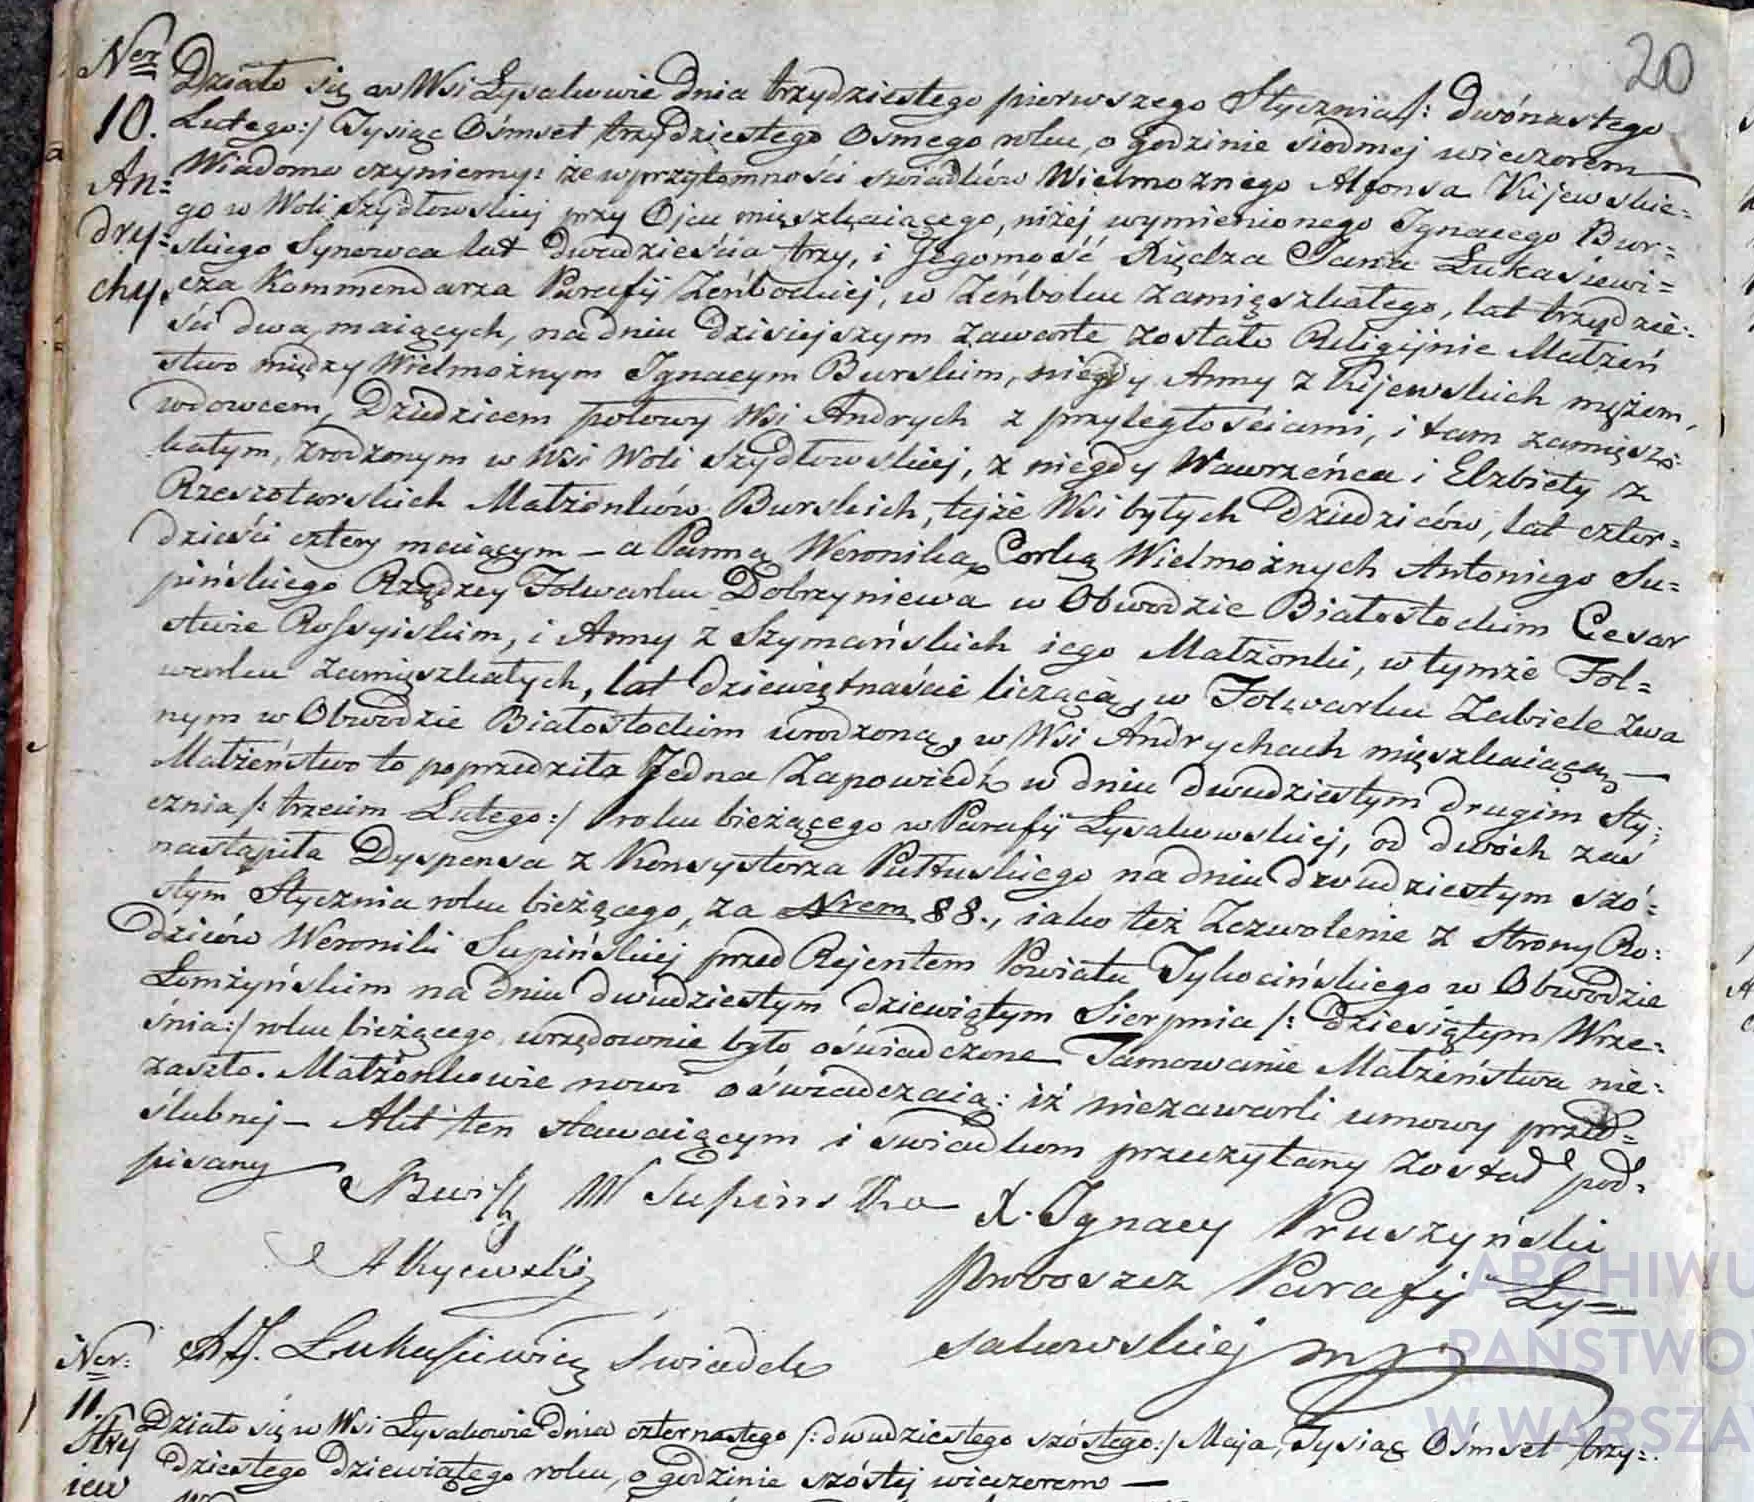 20
Ner
10.
An=
dry=
chy.
Działo się w Wsi Łysakowie dnia trzydziestego pierwszego Stycznia /: dwónastego
Lutego:/ Tysiąc Ośmset trzydziestego Osmego roku, o godzinie siodmej wieczorem
Wiadomo czyniemy: że w przytomności swiadków Wielmożnego Alfonsa Kijewskie=
go w Woli Szydłowskiej przy Ojcu mięszkaiącego, niżej wymienionego Ignacego Bur=
skiego Synowca lat dwadzieścia trzy, i Jegomość Xiędza Jana Łukasiewi=
cza Kommendarza Parafij Zeńbockiej, w Zeńboku zamięszkałego, lat trzydzie=
ści dwa, maiących, na dniu dzisiejszym zawarte zostało Religijnie Małżeń
stwo między Wielmożnym Ignacym Burskim, niegdy Anny z Kijewskich mężem,
wdowcem, Dziedzicem połowy Wsi Andrych z przyległościami, i tam zamięsz=
kałym, zrodzonym w Wsi Woli Szydłowskiej, z niegdy Wawrzeńca i Elzbiety z
Rzeszotarskich Małżonków Burskich, tejże Wsi byłych Dziedziców, lat czter=
dzieści cztery maiącym – a Panną Weroniką Corką Wielmożnych Antoniego Su=
pińskiego Rządzcy Folwarku Dobrzyniewa w Obwodzie Białostockim Cesar
stwie Rossyiskim, i Anny z Szymańskich iego Małżonki, w tymże Fol=
warku zamięszkałych, lat dziewiętnaście liczącą, w Folwarku Zabiele zwa
nym w Obwodzie Białostockim urodzoną, w Wsi Andrychach mięszkaiącą, —
Małżeństwo to poprzedziła Jedna Zapowiedź w dniu dwudziestym drugim Sty=
cznia /: trzecim Lutego:/ roku bieżącego w Parafij Łysakowskiej, od dwóch zaś
nastąpiła Dyspensa z Konsystorza Pułtuskiego na dniu dwudziestym szó=
stym Stycznia roku bieżącego, za Nrem 88., iako też Zezwolenie z strony Ro=
dziców Weroniki Supińskiej przed Rejentem Powiatu Tykocińskiego w Obwodzie
Łomżyńskim na dniu dwudziestym dziewiątym Sierpnia /: dziesiątym Wrze=
śnia:/ roku bieżącego urzędownie było oświadczone Tamowanie Małżeństwa nie=
zaszło. Małżonkowie nowi oświadczaią: iż niezawarli umowy przed=
ślubnej – Akt ten stawaiącym i swiadkom przeczytany został pod=
pisany
W Supinska
X. Ignacy Pruszyński
A Kyewski
Proboszcz Parafij Ły=
X J. Łukasiewicz Swiadek
sakowskiej mp
Ner:
11.
Stry
iew
Działo się w Wsi Łysakowie dnia czternastego /: dwudziestego szóstego:/ Maja, Tysiąc Ośmset trzy=
dziestego dziewiątego roku, o godzinie szóstej wieczorem —
ARCHIWU
PAŃSTWO
W WARSZA